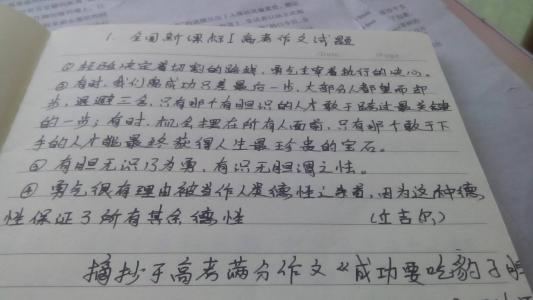 1. 全国新课标I高考作文试题
① 经验决定着切割的路线，勇气主宰着执行的决心。
② 有时，我们离成功只差最后一步，大部分人都望而却
步，退避三舍，只有那个有胆识的人才敢于踏过最关键
的一步；有时，机会摆在所有人面前，只有那个敢于下
手的人才能最终获得人生最珍贵的宝石。
③ 有胆无识乃为勇，有识无胆谓之怯。
④ 勇气很有理由被当作人类德性之首，因为这种德
性保证了所有其余德性 （丘吉尔）
摘抄于高考满分作文《成功要吃豹子胆